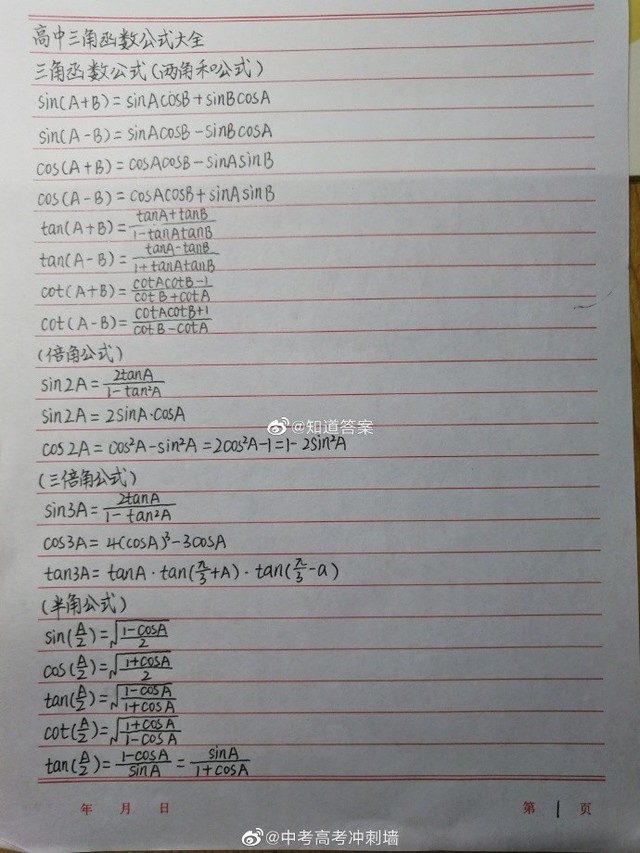 高中三角函数公式大全
三角函数公式(两角和公式)
sin(A+B)=sinAcosB+sinBcosA
sin(A-B)=sinAcosB-sinBcosA
cos(A+B)=cosAcosB-sinAsinB
cos(A-B)=cosAcosB+sinAsinB
tan(A+B)=\frac{tanA+tanB}{1-tanAtanB}
tan(A-B)=\frac{tanA-tanB}{1+tanAtanB}
cot(A+B)=\frac{cotAcotB-1}{cotB+cotA}
cot(A-B)=\frac{cotAcotB+1}{cotB-cotA}
(倍角公式)
sin2A=\frac{2tanA}{1-tan²A}
sin2A=2sinA·cosA
@知道答案
cos2A=cos²A-sin²A=2cos²A-1=1-2sin²A
(三倍角公式)
sin3A=\frac{2tanA}{1-tan²A}
cos3A=4(cosA)³-3cosA
tan3A=tanA·tan(\frac{π}{3}+A)·tan(\frac{π}{3}-a)
(半角公式)
sin(\frac{A}{2})=\sqrt{\frac{1-cosA}{2}}
cos(\frac{A}{2})=\sqrt{\frac{1+cosA}{2}}
tan(\frac{A}{2})=\sqrt{\frac{1-cosA}{1+cosA}}
cot(\frac{A}{2})=\sqrt{\frac{1+cosA}{1-cosA}}
tan(\frac{A}{2})=\frac{1-cosA}{sinA}=\frac{sinA}{1+cosA}
年 月 日 第 1 页
@中考高考冲刺墙